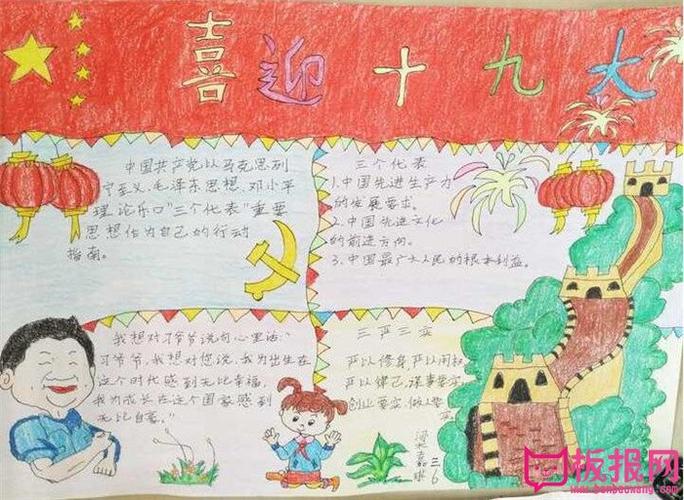 喜迎十九大
中国共产党以马克思列
宁主义、毛泽东思想、邓小平
理论和"三个代表"重要
思想作为自己的行动
指南。
三个代表
1.中国先进生产力
的发展要求。
2.中国先进文化
的前进方向。
3.中国最广大人民的根本利益。
我想对习爷爷说句心里话:
"习爷爷,我想对您说,我为出生在
这个时代感到无比幸福,
我为成长在这个国家感到
无比自豪。"
三严三实
严以修身,严以用权
严以律己,谋事要实
创业要实,做人要实
梁嘉
三6
板报网
www.banbaowang.com